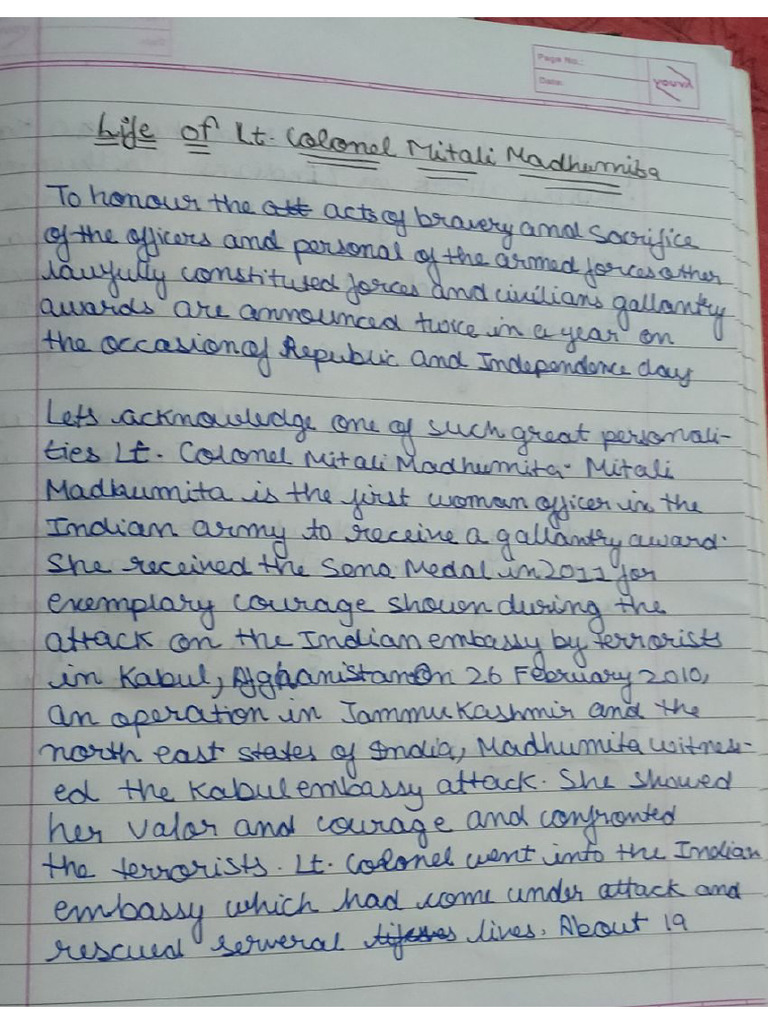 Page No.:
Date:
youva
Life of Lt. Colonel Mitali Madhumita
To honour the acts of bravery and Sacrifice
of the officers and personal of the armed forces other
lawfully constituted forces and civilians gallantry
awards are announced twice in a year on
the occasion of Republic and Independence day
Lets acknowledge one of such great personali-
ties Lt. Colonel Mitali Madhumita. Mitali
Madhumita is the first woman officer in the
Indian army to receive a gallantry award.
She received the Sena Medal in 2011 for
exemplary courage shown during the
attack on the Indian embassy by terrorists
in Kabul, Afghanistan On 26 February 2010,
an operation in Jammu Kashmir and the
north east states of India, Madhumita witness-
ed the Kabul embassy attack. She showed
her valor and courage and confronted
the terrorists. Lt. Colonel went into the Indian
embassy which had come under attack and
rescued serveral lives. About 19